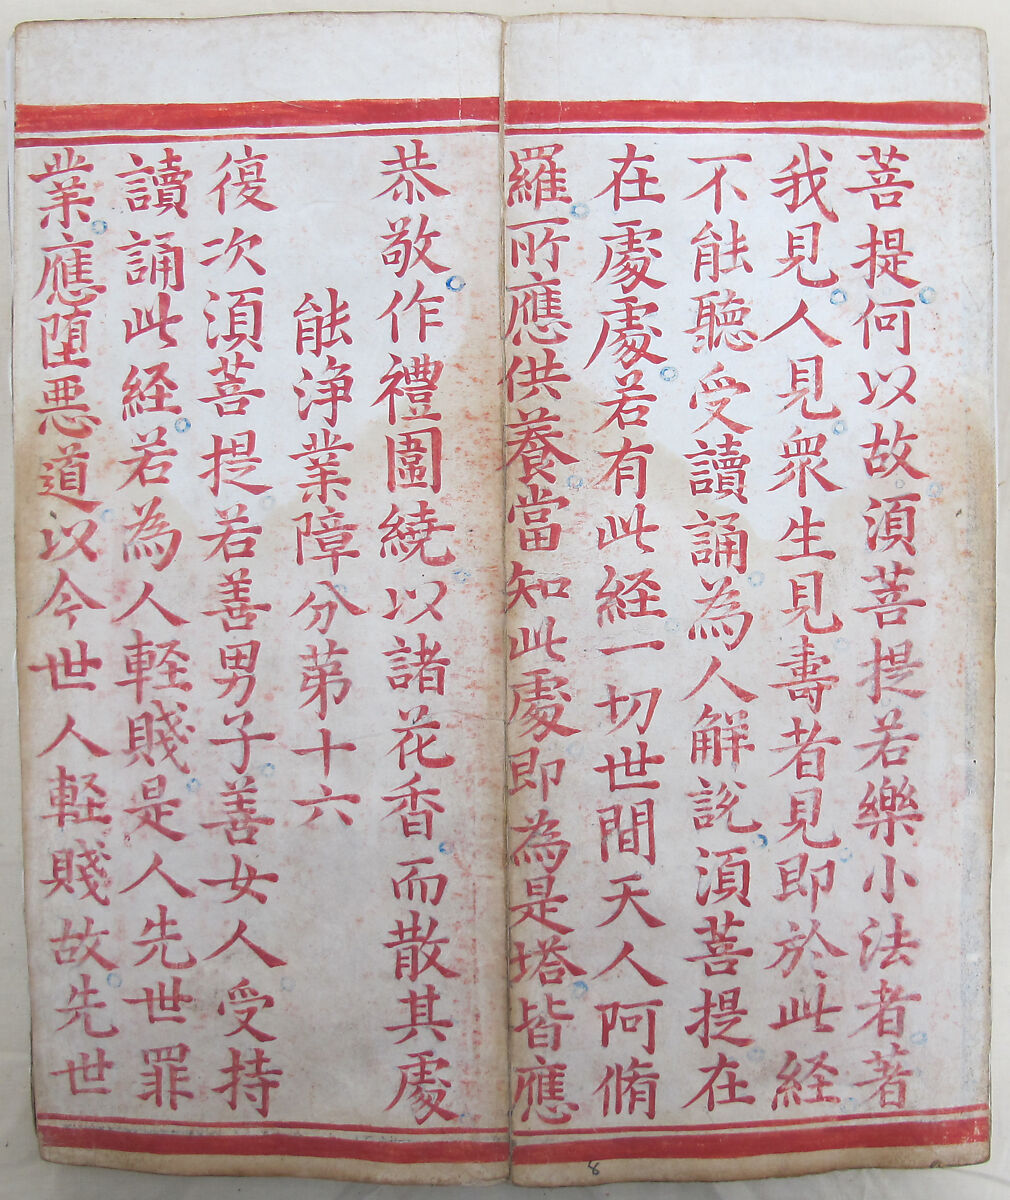 菩提何以故湏菩提若樂小法者著
我見人見衆生見壽者見即於此経
不能聽受讀誦為人解説湏菩提在
在處處若有此経一切世間天人阿脩
羅所應供養當知此處即為是塔皆應
恭敬作禮圍繞以諸花香而散其處
能浄業障分第十六
復次湏菩提若善男子善女人受持
讀誦此経若為人軽賤是人先世罪
業應堕悪道以今世人軽賤故先世
8